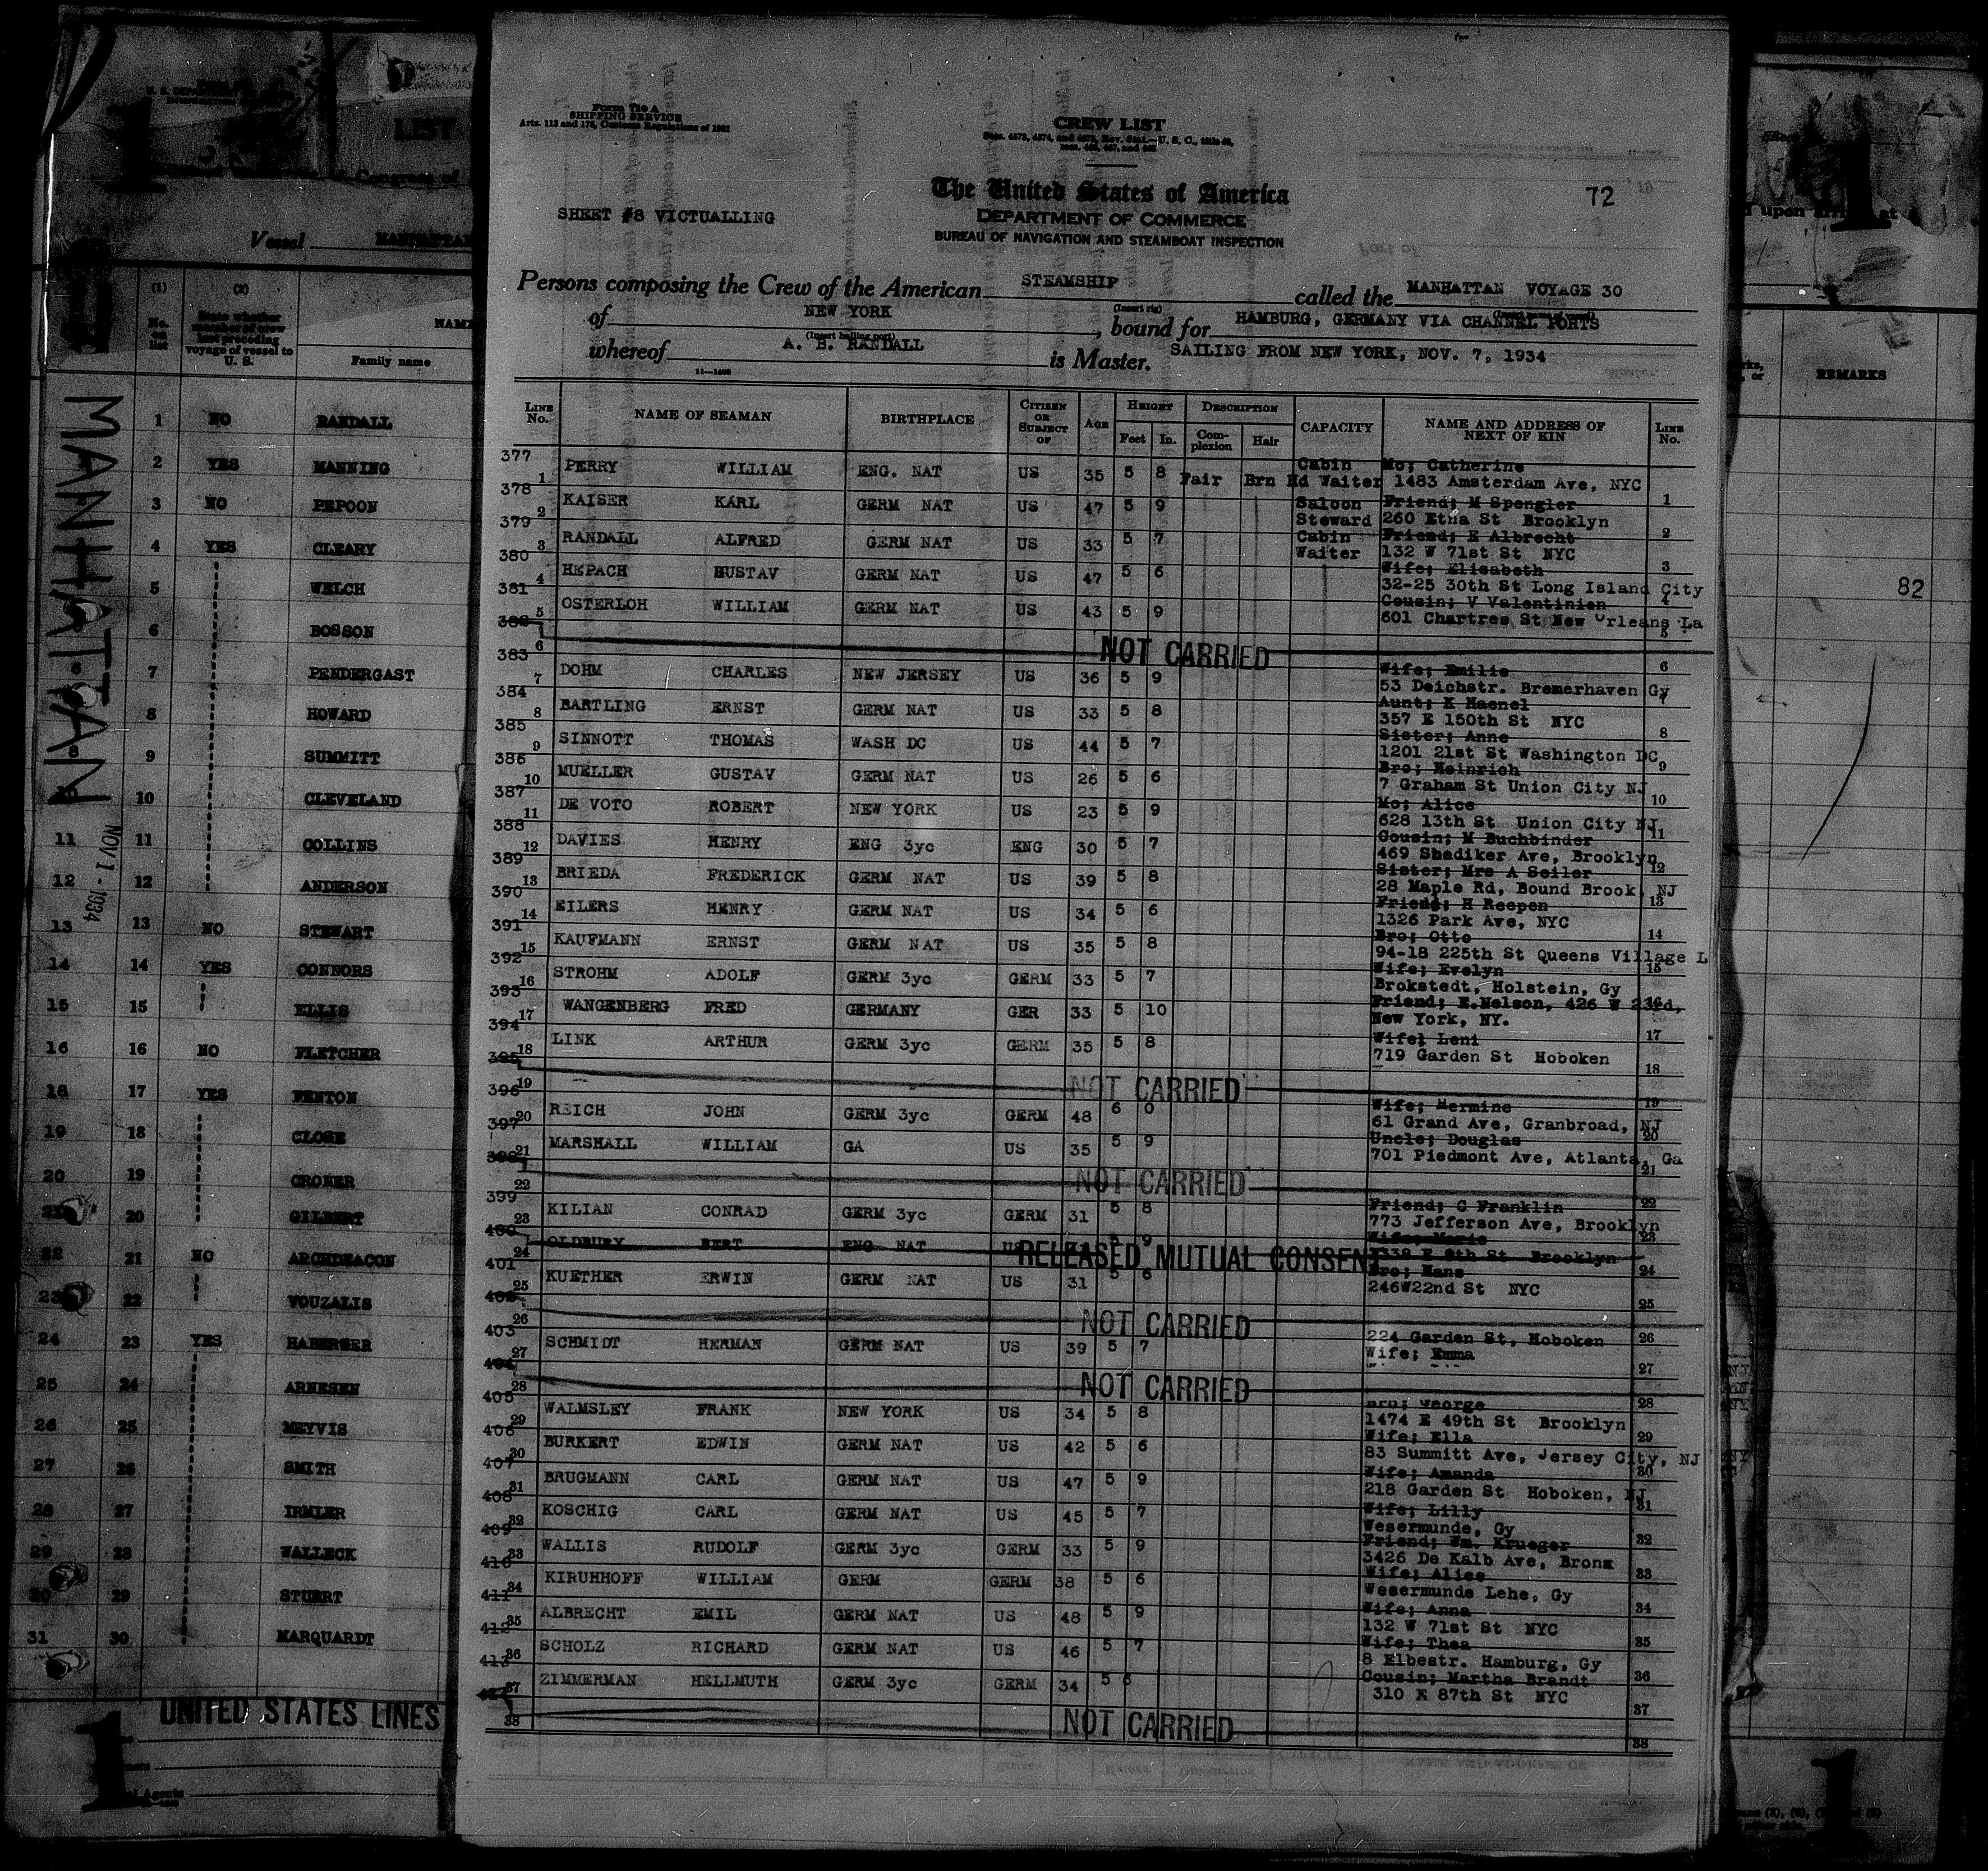 LIST
Vessel MANHATTAN
(1) (2)
No. on list
State whether member of crew last preceding voyage of vessel to U. S.
Family name
MANHATTAN
NOV 1 - 1934
1 NO RANDALL
2 YES MANNING
3 NO PEPOON
4 YES CLEARY
5 WELCH
6 BOSSON
7 PENDERGAST
8 HOWARD
9 SUMMITT
10 CLEVELAND
11 11 COLLINS
12 12 ANDERSON
13 13 NO STEWART
14 14 YES CONNORS
15 15 ELLIS
16 16 NO FLETCHER
18 17 YES FENTON
19 18 CLOSE
20 19 CRONER
21 20 GILBERT
22 21 NO ARCHDEACON
23 22 VOUZALIS
24 23 YES HABERGER
25 24 ARNESEN
26 25 MEYVIS
27 26 SMITH
28 27 IRMLER
29 28 WALLECK
30 29 STUERT
31 30 MARQUARDT
UNITED STATES LINES
1
Form 710 A
SHIPPING SERVICE
Arts. 113 and 175, Customs Regulations of 1931
CREW LIST
The United States of America
DEPARTMENT OF COMMERCE
BUREAU OF NAVIGATION AND STEAMBOAT INSPECTION
72
SHEET #8 VICTUALLING
Persons composing the Crew of the American STEAMSHIP called the MANHATTAN VOYAGE 30
(Insert rig)
of NEW YORK, bound for HAMBURG, GERMANY VIA CHANNEL PORTS
(Insert hailing port)
whereof A. B. RANDALL is Master. SAILING FROM NEW YORK, NOV. 7, 1934
LINE No. NAME OF SEAMAN BIRTHPLACE CITIZEN OR SUBJECT OF AGE HEIGHT Feet In. DESCRIPTION Complexion Hair CAPACITY NAME AND ADDRESS OF NEXT OF KIN LINE No.
377 1 PERRY WILLIAM ENG. NAT US 35 5 8 Fair Brn Cabin Hd Waiter Mo; Catherine
1483 Amsterdam Ave, NYC
378 2 KAISER KARL GERM NAT US 47 5 9 Saloon Steward Friend; M Spengler
260 Etna St Brooklyn
379 3 RANDALL ALFRED GERM NAT US 33 5 7 Cabin Waiter Friend; E Albrecht
132 W 71st St NYC
380 4 HEPACH GUSTAV GERM NAT US 47 5 6 Wife; Elisabeth
32-25 30th St Long Island City
381 5 OSTERLOH WILLIAM GERM NAT US 43 5 9 Cousin; V Valentinien
601 Chartres St New Orleans La
382 6 NOT CARRIED
383 7 DOHM CHARLES NEW JERSEY US 36 5 9 Wife; Emilie
53 Deichstr. Bremerhaven Gy
384 8 BARTLING ERNST GERM NAT US 33 5 8 Aunt; K Haenel
357 E 150th St NYC
385 9 SINNOTT THOMAS WASH DC US 44 5 7 Sister; Anne
1201 21st St Washington DC
386 10 MUELLER GUSTAV GERM NAT US 26 5 6 Bro; Heinrich
7 Graham St Union City NJ
387 11 DE VOTO ROBERT NEW YORK US 23 5 9 Mo; Alice
628 13th St Union City NJ
388 12 DAVIES HENRY ENG 3yc ENG 30 5 7 Cousin; M Buchbinder
469 Shediker Ave, Brooklyn
389 13 BRIEDA FREDERICK GERM NAT US 39 5 8 Sister; Mrs A Seiler
28 Maple Rd, Bound Brook, NJ
390 14 EILERS HENRY GERM NAT US 34 5 6 Friend; H Reepen
1326 Park Ave, NYC
391 15 KAUFMANN ERNST GERM NAT US 35 5 8 Bro; Otto
94-18 225th St Queens Village L
392 16 STROHM ADOLF GERM 3yc GERM 33 5 7 Wife; Evelyn
Brokstedt, Holstein, Gy
393 17 WANGENBERG FRED GERMANY GER 33 5 10 Friend; E.Nelson, 426 W 23rd,
New York, NY.
394 18 LINK ARTHUR GERM 3yc GERM 35 5 8 Wife; Leni
719 Garden St Hoboken
395 19 NOT CARRIED
396 20 REICH JOHN GERM 3yc GERM 48 6 0 Wife; Hermine
61 Grand Ave, Granbroad, NJ
397 21 MARSHALL WILLIAM GA US 35 5 9 Uncle; Douglas
701 Piedmont Ave, Atlanta, Ga
398 22 NOT CARRIED
399 23 KILIAN CONRAD GERM 3yc GERM 31 5 8 Friend; C Franklin
773 Jefferson Ave, Brooklyn
400 24 OLDBURY BERT ENG NAT RELEASED MUTUAL CONSENT Wife; Marie
Brooklyn
401 25 KUETHER ERWIN GERM NAT US 31 5 6 Bro; Hans
246W22nd St NYC
402 26 NOT CARRIED
403 27 SCHMIDT HERMAN GERM NAT US 39 5 7 224 Garden St, Hoboken
Wife; Emma
404 28 NOT CARRIED
405 29 WALMSLEY FRANK NEW YORK US 34 5 8 Bro; George
1474 E 49th St Brooklyn
406 30 BURKERT EDWIN GERM NAT US 42 5 6 Wife; Ella
83 Summitt Ave, Jersey City, NJ
407 31 BRUGMANN CARL GERM NAT US 47 5 9 Wife; Amanda
218 Garden St Hoboken, NJ
408 32 KOSCHIG CARL GERM NAT US 45 5 7 Wife; Lilly
Wesermunde, Gy
409 33 WALLIS RUDOLF GERM 3yc GERM 33 5 9 Friend; Wm. Krueger
3426 De Kalb Ave, Bronx
410 34 KIRUHHOFF WILLIAM GERM GERM 38 5 6 Wife; Alice
Wesermunde Lehe, Gy
411 35 ALBRECHT EMIL GERM NAT US 48 5 9 Wife; Anna
132 W 71st St NYC
412 36 SCHOLZ RICHARD GERM NAT US 46 5 7 Wife; Thea
8 Elbestr. Hamburg, Gy
413 37 ZIMMERMAN HELLMUTH GERM 3yc GERM 34 5 6 Cousin; Martha Brandt
310 E 87th St NYC
38 NOT CARRIED 38
REMARKS
82
1